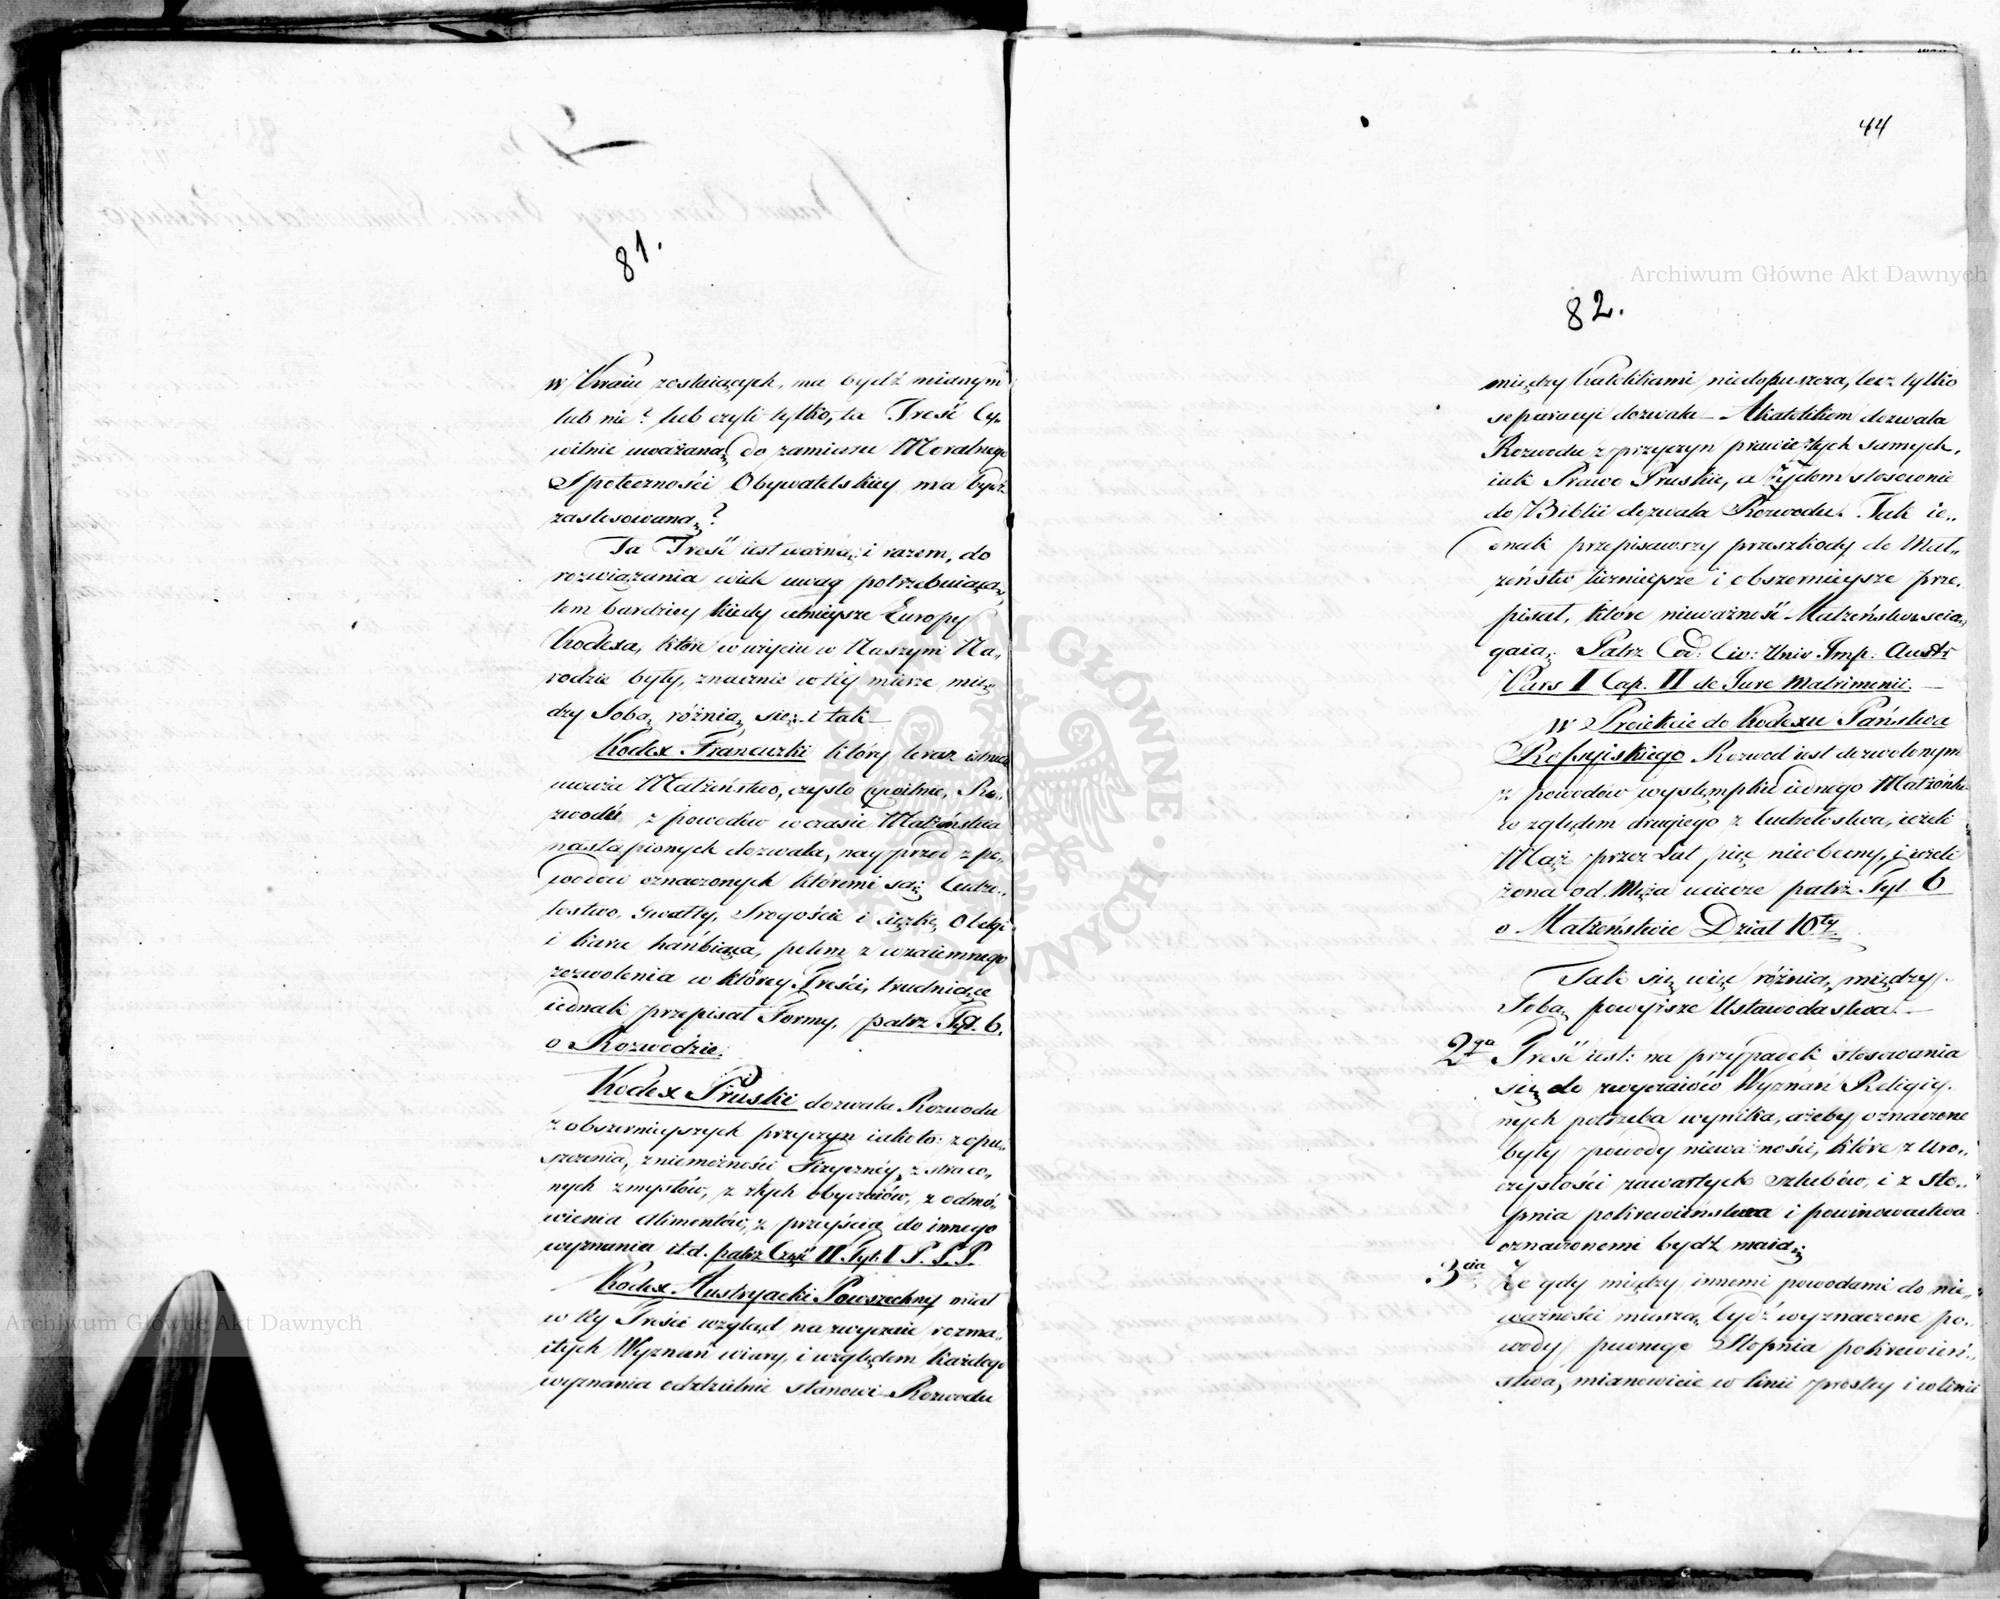 81.
w Kraiu zostaiących, ma bydź mianym
lub nie? lub czyli tylko, ta Treść Cy„
wilnie uważana, do zamiaru Moralnego
Społeczności Obywatelskiey ma bydź
zastosowaną?
Ta Treść iest ważną, i razem, do
rozwiązania wiele uwag potrzebuiącą,
tem bardziey kiedy celnieysze Europy
Kodexa, które w użyciu w Naszym Na„
rodzie były, znacznie w tey mierze mię
dzy Sobą różnią się, i tak
Kodex Francuzki który teraz istnieie
uważa Małżeństwo, czysto Cywilnie, Ro„
zwodu z powodów w czasie Małżeństwa
nastąpionych dozwala, nayprzód z po„
wodów oznaczonych któremi są, Cudzo„
łostwo, Gwałty, Srogoście i ciężkie Obelgi
i kara hańbiąca, potem z wzaiemnego
zezwolenia w którey Treści, trudniące
iednak przepisał Formy, patrz Tyt. 6.
o Rozwodzie.
Kodex Pruski dozwala Rozwodu
z obszernieyszych przyczyn iakoto: z opu„
szczenia, z niemożności Fizyczney, z straco„
nych zmysłów, z złych obyczaiów, z odmó„
wienia alimentów, z przeyścia do innego
wyznania i t. d. patrz Część II Tyt. I P. S. P.
Kodex Austryacki Powszechny miał
w tey Treści wzgląd na zwyczaie rozma„
itych Wyznań wiary, i względem każdego
wyznania oddzielnie stanowi Rozwodu
44
82.
między Katolikami niedopuszcza, lecz tylko
separacyi dozwala – Akatolikom dozwala
Rozwodu z przyczyn prawie tych samych,
iak Prawo Pruskie, a Żydom stosownie
do Biblii dozwala Rozwodu. Tak ie„
dnak przepisawszy przeszkody do Mał„
żeństw licznieysze i obszernieysze prze„
pisał, które nieważność Małżeństwa ścią„
gaią. Patrz Cod: Civ: Univ Imp: Austr
Pars I Cap. II de Jure Matrimonii.
W Proiekcie do Kodexu Państwa
Rossyiskiego Rozwod iest dozwolonym
z powodów występku iednego Małżonka
względem drugiego z Cudzołostwa, ieżeli
Mąż przez Lat pięć nieobecny, i ieżeli
żona od Męża uciecze patrz Tyt. 6
o Małżeństwie Dział 10ty.
Tak się więc różnią między
Sobą powyższe Ustawodastwa.
2ga Treść iest: na przypadek stosowania
się do zwyczaiów Wyznań Religiy„
nych potrzeba wynika, ażeby oznaczone
były powody nieważności, które z Uro„
czystości zawartych szlubów, i z sto„
pnia pokrewieństwa i powinowactwa
oznaczonemi bydź maią.
3cia Że gdy między innemi powodami do nie„
ważności muszą bydź wyznaczone po„
wody pewnego Stopnia pokrewień„
stwa, mianowicie w linii prostey i w linii
Archiwum Główne Akt Dawnych
Archiwum Główne Akt Dawnych
ARCHIWUM GŁÓWNE AKT DAWNYCH